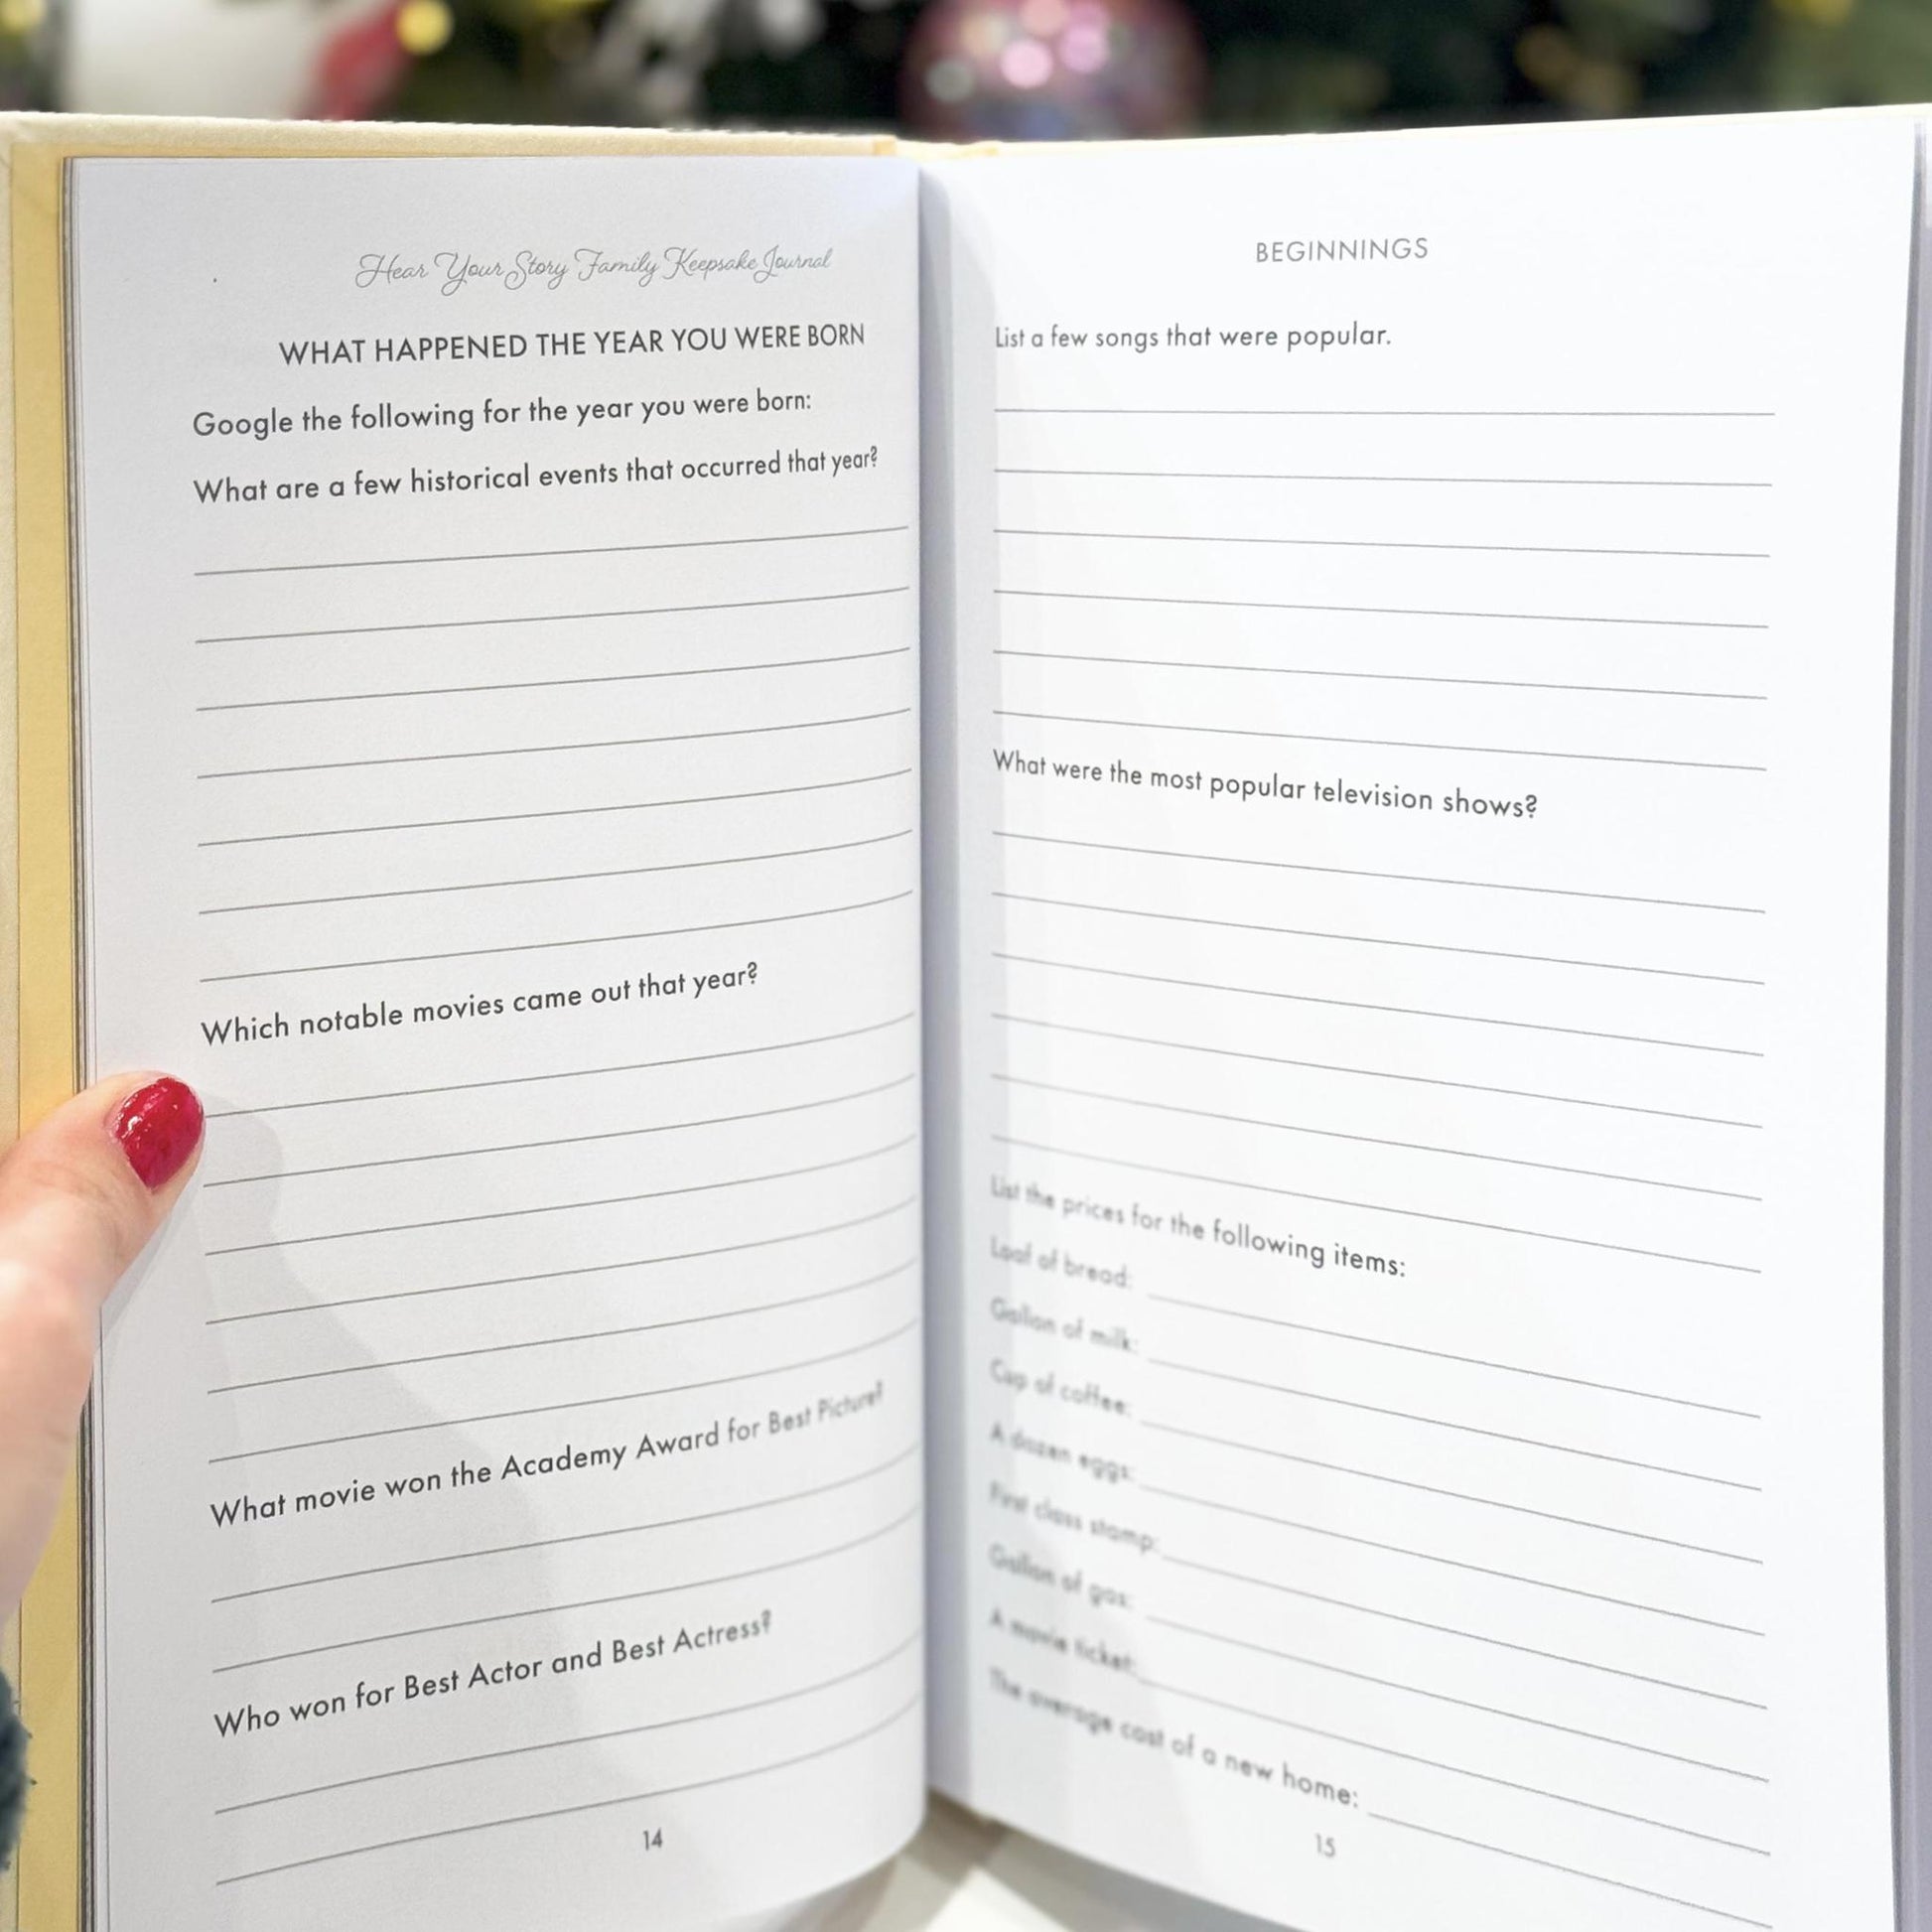 Hear Your Story Family Keepsake Journal
WHAT HAPPENED THE YEAR YOU WERE BORN
Google the following for the year you were born:
What are a few historical events that occurred that year?
Which notable movies came out that year?
What movie won the Academy Award for Best Picture?
Who won for Best Actor and Best Actress?
14
BEGINNINGS
List a few songs that were popular.
What were the most popular television shows?
List the prices for the following items:
Loaf of bread:
Gallon of milk:
Cup of coffee:
A dozen eggs:
First class stamp:
Gallon of gas:
A movie ticket:
The average cost of a new home:
15